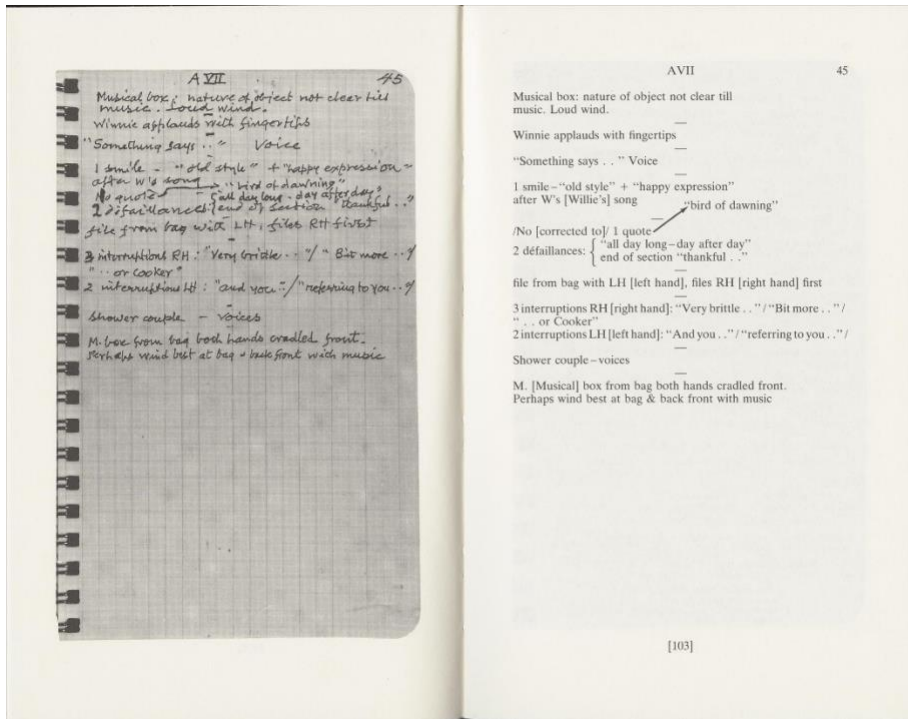 A VII 45
Musical box: nature of object not clear till
music. Loud wind.
Winnie applauds with fingertips
"Something says .." Voice
1 smile - "old style" + "happy expression"
after W's song
"bird of dawning"
No quote
2 défaillances: { "all day long - day after day"
end of section "thankful .."
file from bag with LH, files RH first
3 interruptions RH: "Very brittle .."/ "Bit more .."/
" .. or Cooker"
2 interruptions LH: "and you .."/"referring to you .."/
Shower couple - voices
M. box from bag both hands cradled front.
Perhaps wind best at bag & back front with music
AVII 45
Musical box: nature of object not clear till
music. Loud wind.
Winnie applauds with fingertips
“Something says . . ” Voice
1 smile–“old style” + “happy expression”
after W's [Willie's] song
“bird of dawning”
/No [corrected to]/ 1 quote
2 défaillances: { “all day long–day after day”
end of section “thankful . .”
file from bag with LH [left hand], files RH [right hand] first
3 interruptions RH [right hand]: “Very brittle . .”/“Bit more . .”/
“ . . or Cooker”
2 interruptions LH [left hand]: “And you . .”/“referring to you . .”/
Shower couple–voices
M. [Musical] box from bag both hands cradled front.
Perhaps wind best at bag & back front with music
[103]